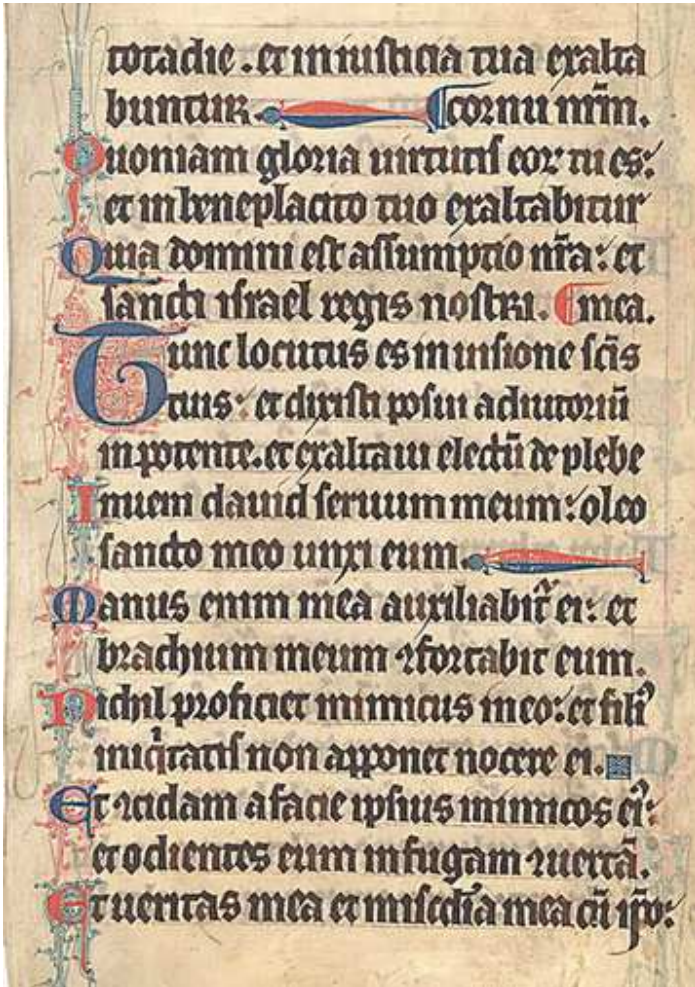 tota die . et in iusticia tua exalta
buntur. ¶cornu nr̄m.
Quoniam gloria uirtutis eoꝝ tu es:
et in beneplacito tuo exaltabitur
Quia domini est assumptio nr̄a: et
sancti israel regis nostri. ¶mea.
Tunc locutus es in uisione sc̄is
tuis: et dixisti posui adiutoriū
in potente. et exaltaui electū de plebe
Inueni dauid seruum meum: oleo
sancto meo unxi eum.
Manus enim mea auxiliabit᷑ ei: et
brachium meum ꝯfortabit eum.
Nichil proficiet inimicus in eo: et filiꝰ
iniqͥtatis non apponet nocere ei.
Et ꝯcidam a facie ipsius inimicos eiꝰ:
et odientes eum in fugam ꝯuertā.
Et ueritas mea et misc̄dia mea cū ip̄o: